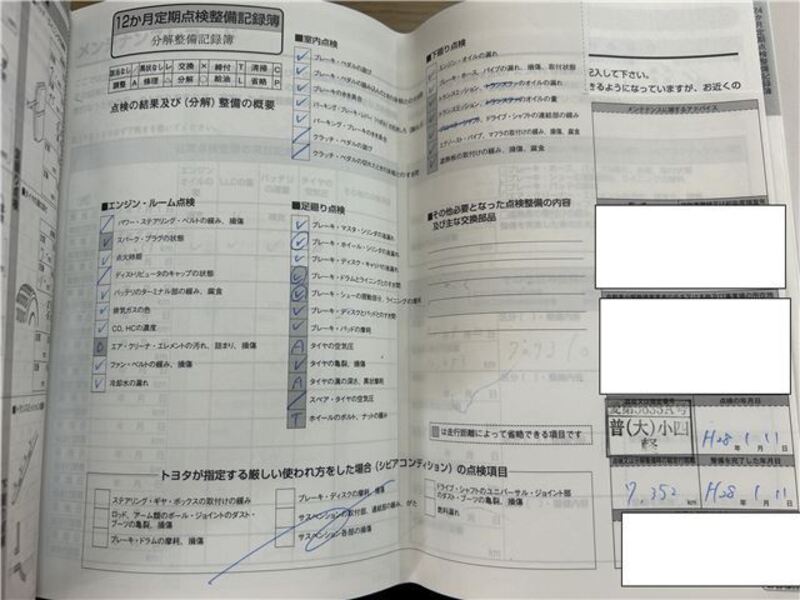 12か月定期点検整備記録簿
分解整備記録簿
該当なし / 異状なし レ 交換 × 締付 T 清掃 C
調整 A 修理 △ 分解 ○ 給油 L 省略 P
点検の結果及び(分解)整備の概要
■室内点検
ブレーキ・ペダルの遊び
ブレーキのきき具合
パーキング・ブレーキのきき具合
クラッチ・ペダルの遊び
■エンジン・ルーム点検
パワー・ステアリング・ベルトの緩み、損傷
スパーク・プラグの状態
点火時期
ディストリビュータのキャップの状態
バッテリのターミナル部の緩み、腐食
排気ガスの色
CO、HCの濃度
エア・クリーナ・エレメントの汚れ、詰まり、損傷
ファン・ベルトの緩み、損傷
冷却水の漏れ
■足廻り点検
ブレーキ・マスタ・シリンダの液漏れ
ブレーキ・ホイール・シリンダの液漏れ
ブレーキ・ディスク・キャリパの液漏れ
ブレーキ・ドラムとライニングとのすき間
ブレーキ・シューの摺動部分、ライニングの摩耗
ブレーキ・ディスクとパッドとのすき間
ブレーキ・パッドの摩耗
A タイヤの空気圧
タイヤの亀裂、損傷
A タイヤの溝の深さ、異状摩耗
スペア・タイヤの空気圧
T ホイールのボルト、ナットの緩み
■下廻り点検
エンジン・オイルの漏れ
ブレーキ・ホース、パイプの漏れ、損傷、取付状態
トランスミッション、トランスファのオイルの漏れ
トランスミッション、トランスファのオイルの量
プロペラ・シャフト、ドライブ・シャフトの連結部の緩み
エグゾースト・パイプ、マフラの取付けの緩み、損傷、腐食
遮熱板の取付けの緩み、損傷、腐食
■その他必要となった点検整備の内容
及び主な交換部品
は走行距離によって省略できる項目です
トヨタが指定する厳しい使われ方をした場合(シビアコンディション)の点検項目
ステアリング・ギヤ・ボックスの取付けの緩み
ロッド、アーム類のボール・ジョイントのダスト・
ブーツの亀裂、損傷
ブレーキ・ドラムの摩耗、損傷
ブレーキ・ディスクの摩耗、損傷
サスペンションの取付部、連結部の緩み、がた
サスペンション各部の損傷
ドライブ・シャフトのユニバーサル・ジョイント部
のダスト・ブーツの亀裂、損傷
燃料漏れ
記入して下さい。
きるようになっていますが、お近くの
メンテナンスに関するアドバイス
普(大)小四
軽
点検の年月日
H28年 1月 11日
整備を完了した年月日
7,352 km
H28年 1月 11日